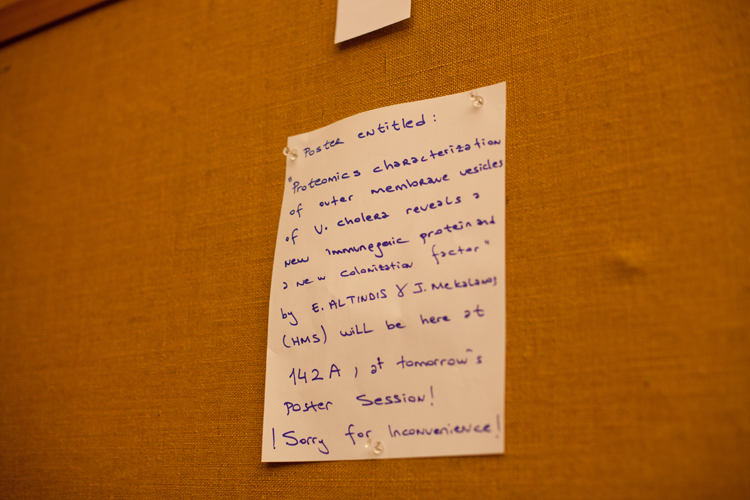 Poster entitled:
"Proteomics characterization
of outer membrane vesicles
of V. cholera reveals a
new immunegaic protein and
a new colonization factor"
by E. ALTINDIS & J. Mekalanos
(HMS) will be here at
142A, at tomorrow's
Poster Session!
! Sorry for Inconvenience!